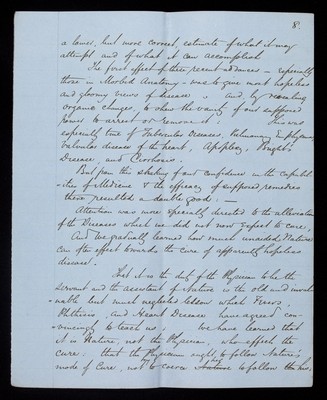 8
a lower, but more correct, estimate of what it may
attempt and of what it can accomplish
The first effect of these recent advances – especially
those in Morbid Anatomy – was to give most hopeless
and gloomy views of disease, and, by revealing
organic changes, to show the vanity of our supposed
power to arrest or remove it. This was
especially true of Tubercular Diseases, Pulmonary Emphysema,
Valvular diseases of the heart, Apoplexy, Bright's
Disease, and Cirrhosis.
But from this shaking of our confidence in the capabil-
ities of Medicine & the efficacy of supposed remedies
there resulted a double good: –
Attention was more specially directed to the alleviation
of the Diseases which we did not now expect to cure,
And we gradually learned how much unaided Nature
can often effect towards the cure of apparently hopeless
disease.
That it is the duty of the Physician to be the
servant and the assistant of Nature is the old and
but much neglected lesson which Fevers,
Phthisis, and Heart Disease have agreed con-
vincingly to teach us; We have learned that
it is Nature, not the Physician, who effects the
cure; that the Physician ought to follow Nature's
mode of Cure, not to coerce Nature to follow his,